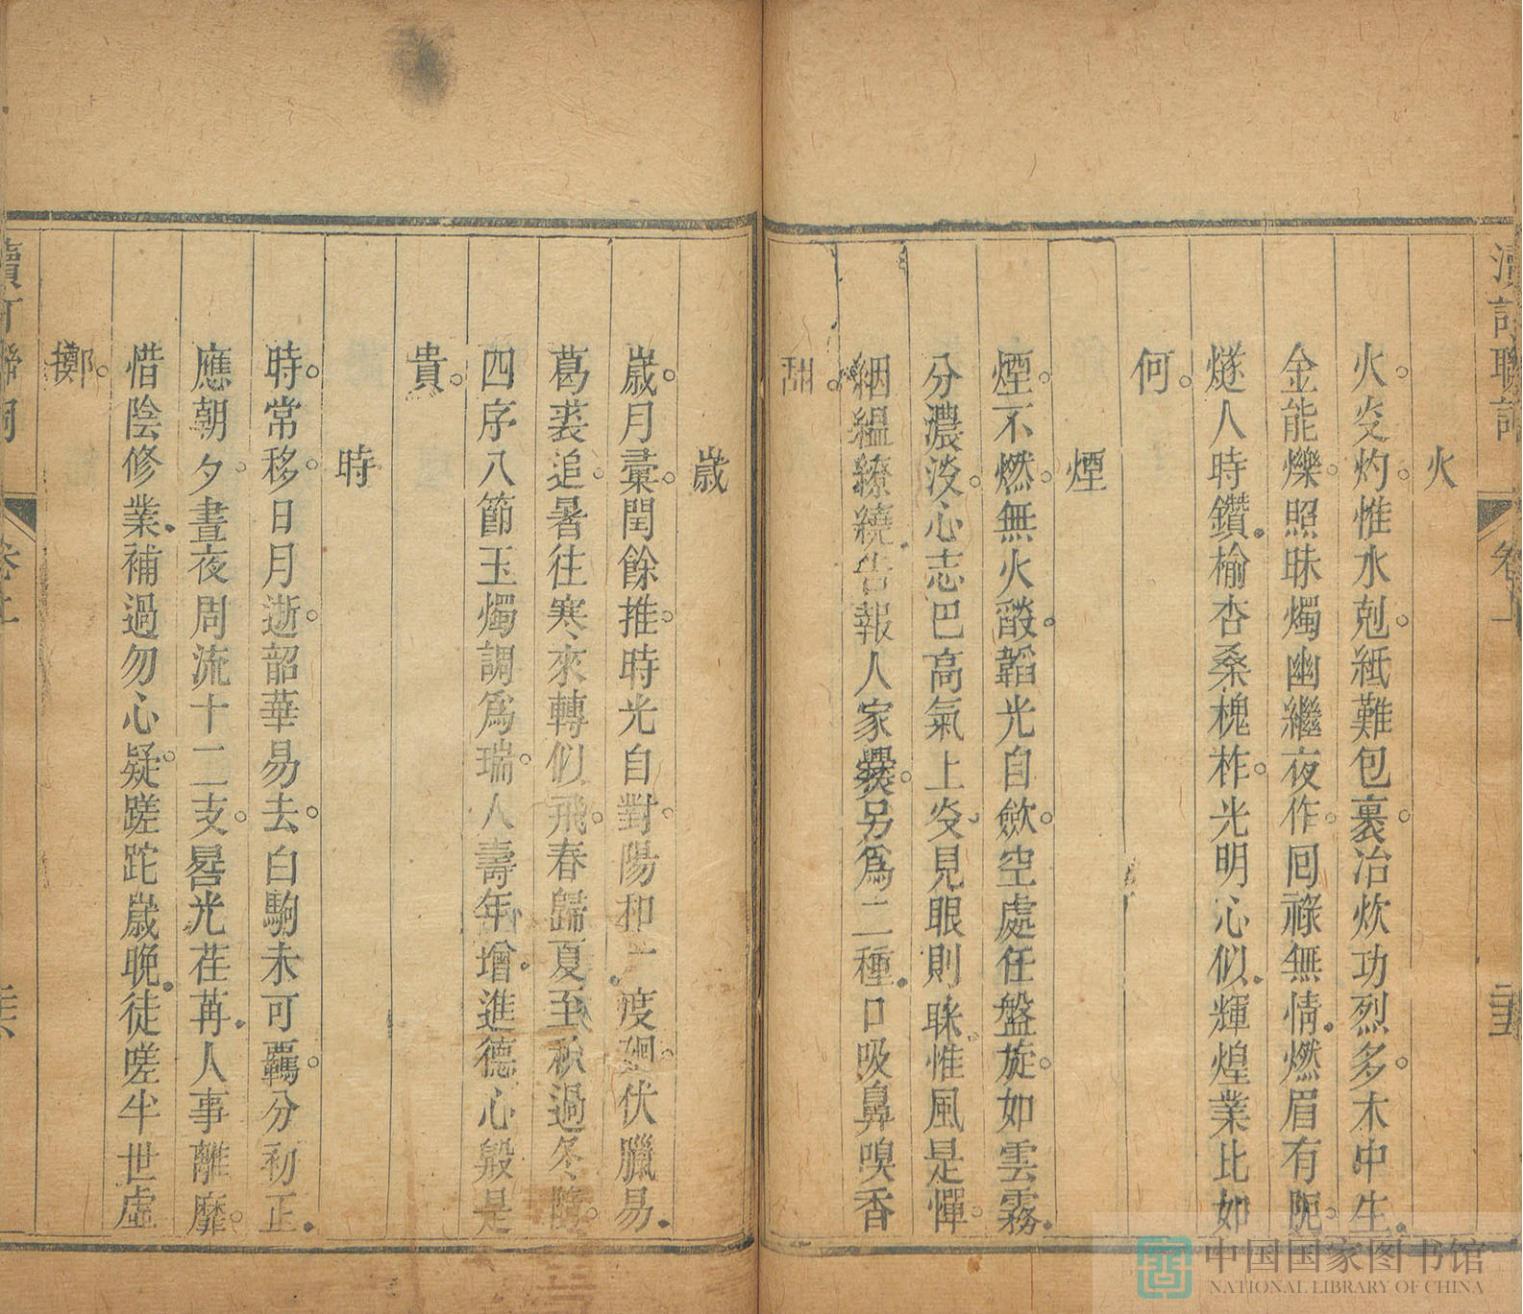 火
火炎灼惟水剋紙難包裹冶炊功烈多木中生
金能爍照昧燭幽繼夜作回祿無情燃眉有
燧人時鑽榆杏桑槐柞光明心似輝煌業比如
何
煙
煙不燃無火燄韜光自歛空處任盤旋如雲霧
分濃淡心志巴高氣上炎見眼則眯惟風是憚
絪縕繚繞告報人家爨另為二種口吸鼻嗅香
甜
歲
歲月櫜閏餘推時光自對陽和一度廻伏臘易
葛裘追暑往寒來轉似飛春歸夏至秋過冬隨
四序八節玉燭調爲瑞人壽年增進德心殷是
貴
時
時常移日月逝韶華易去白駒未可羈分初正
應朝夕晝夜周流十二支晷光荏苒人事離靡
惜陰修業補過勿心疑蹉跎歲晚徒嗟半世虛
擲
中国国家图书馆
NATIONAL LIBRARY OF CHINA